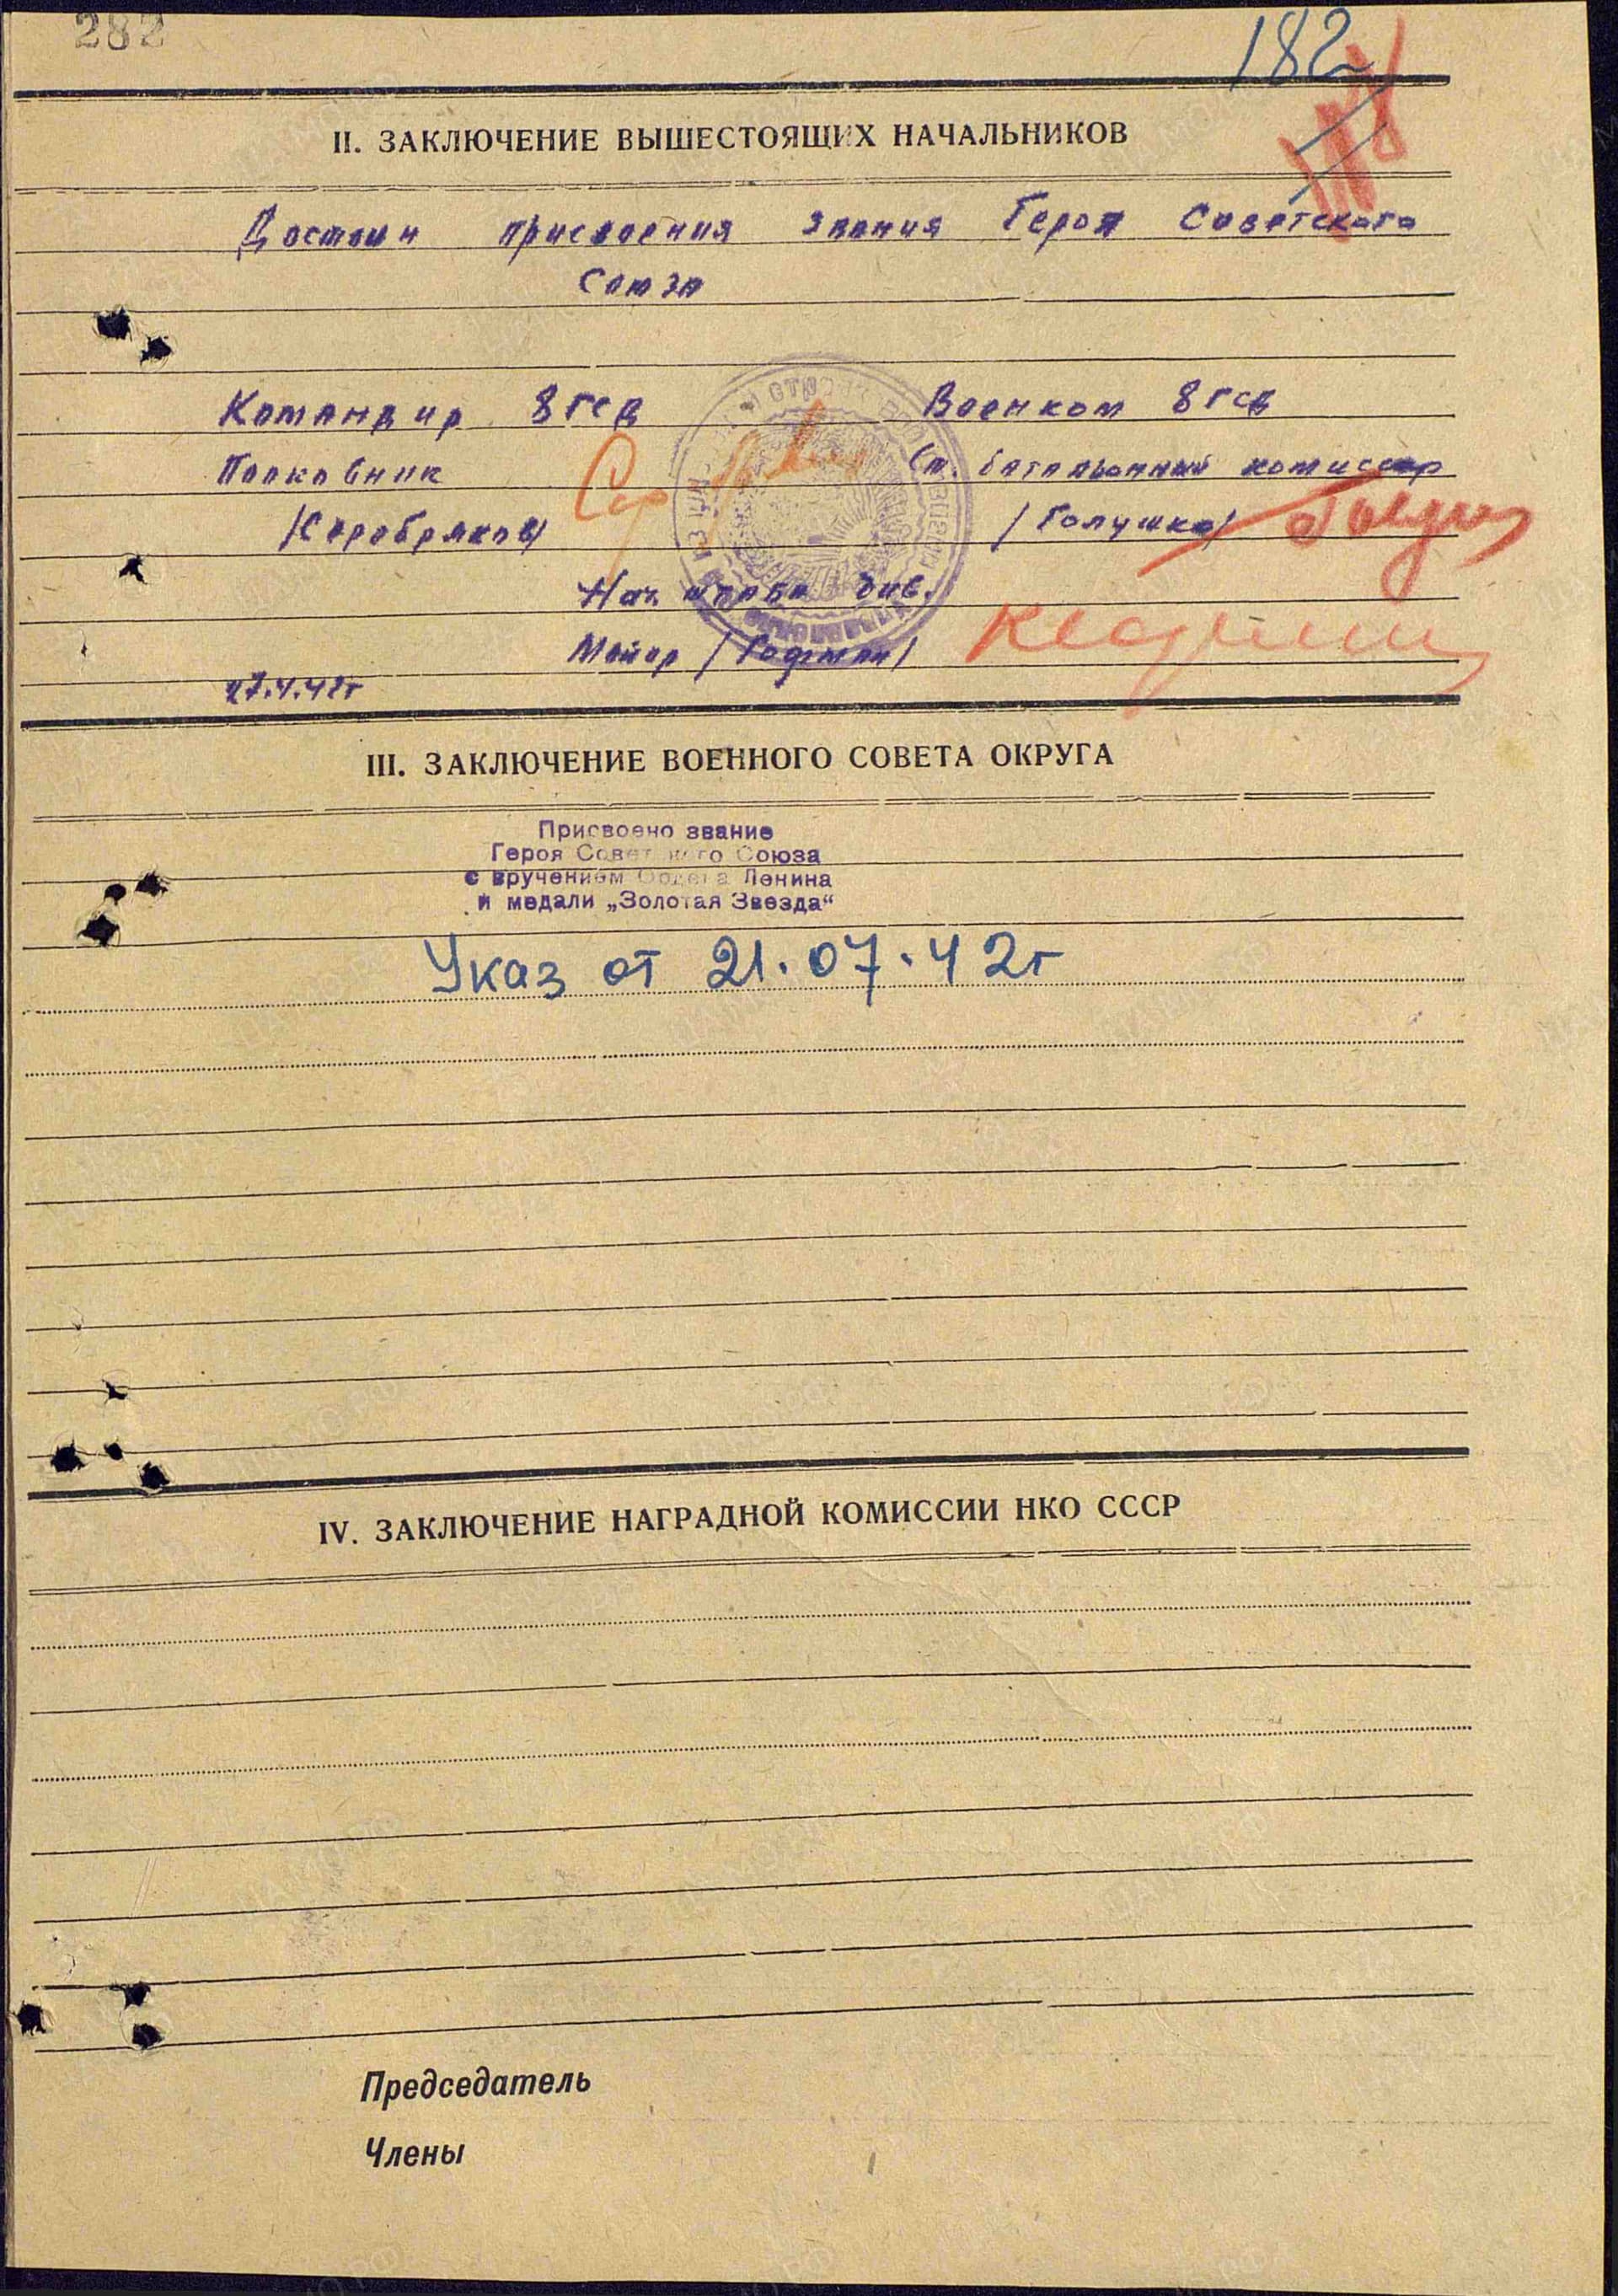 282
182
II. ЗАКЛЮЧЕНИЕ ВЫШЕСТОЯЩИХ НАЧАЛЬНИКОВ
Достоин присвоения звания Героя Советского
Союза
Командир 8 гсд Военком 8 гсд
Полковник Ст. батальонный комиссар
/Серебряков/ /Галушко/
Нач. штаба див.
Майор /Гофман/
27.4.42г
III. ЗАКЛЮЧЕНИЕ ВОЕННОГО СОВЕТА ОКРУГА
Присвоено звание
Героя Советского Союза
с вручением Ордена Ленина
и медали „Золотая Звезда“
Указ от 21.07.42г
IV. ЗАКЛЮЧЕНИЕ НАГРАДНОЙ КОМИССИИ НКО СССР
Председатель
Члены